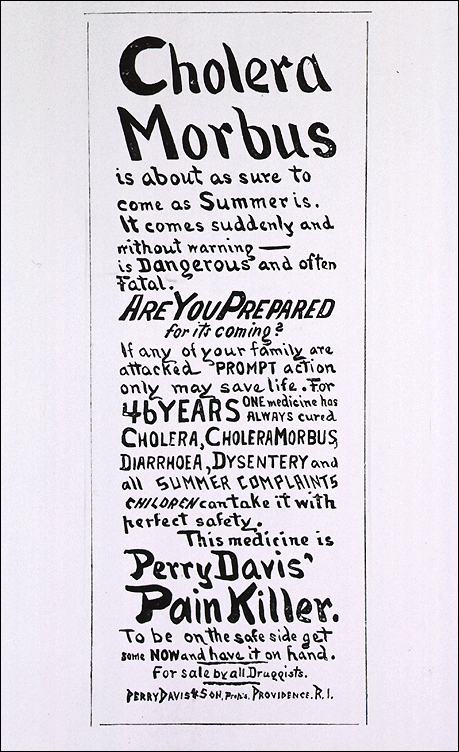 Cholera
Morbus
is about as sure to
come as Summer is.
It comes suddenly and
without warning —
is Dangerous and often
Fatal.
ARE YOU PREPARED
for its coming?
If any of your family are
attacked PROMPT action
only may save life. For
46 YEARS ONE medicine has
ALWAYS cured
CHOLERA, CHOLERA MORBUS,
DIARRHOEA, DYSENTERY and
all SUMMER COMPLAINTS
CHILDREN can take it with
perfect safety.
This medicine is
Perry Davis'
Pain Killer.
To be on the safe side get
some NOW and have it on hand.
For sale by all Druggists.
PERRY DAVIS & SON, Prop's. PROVIDENCE. R. I.